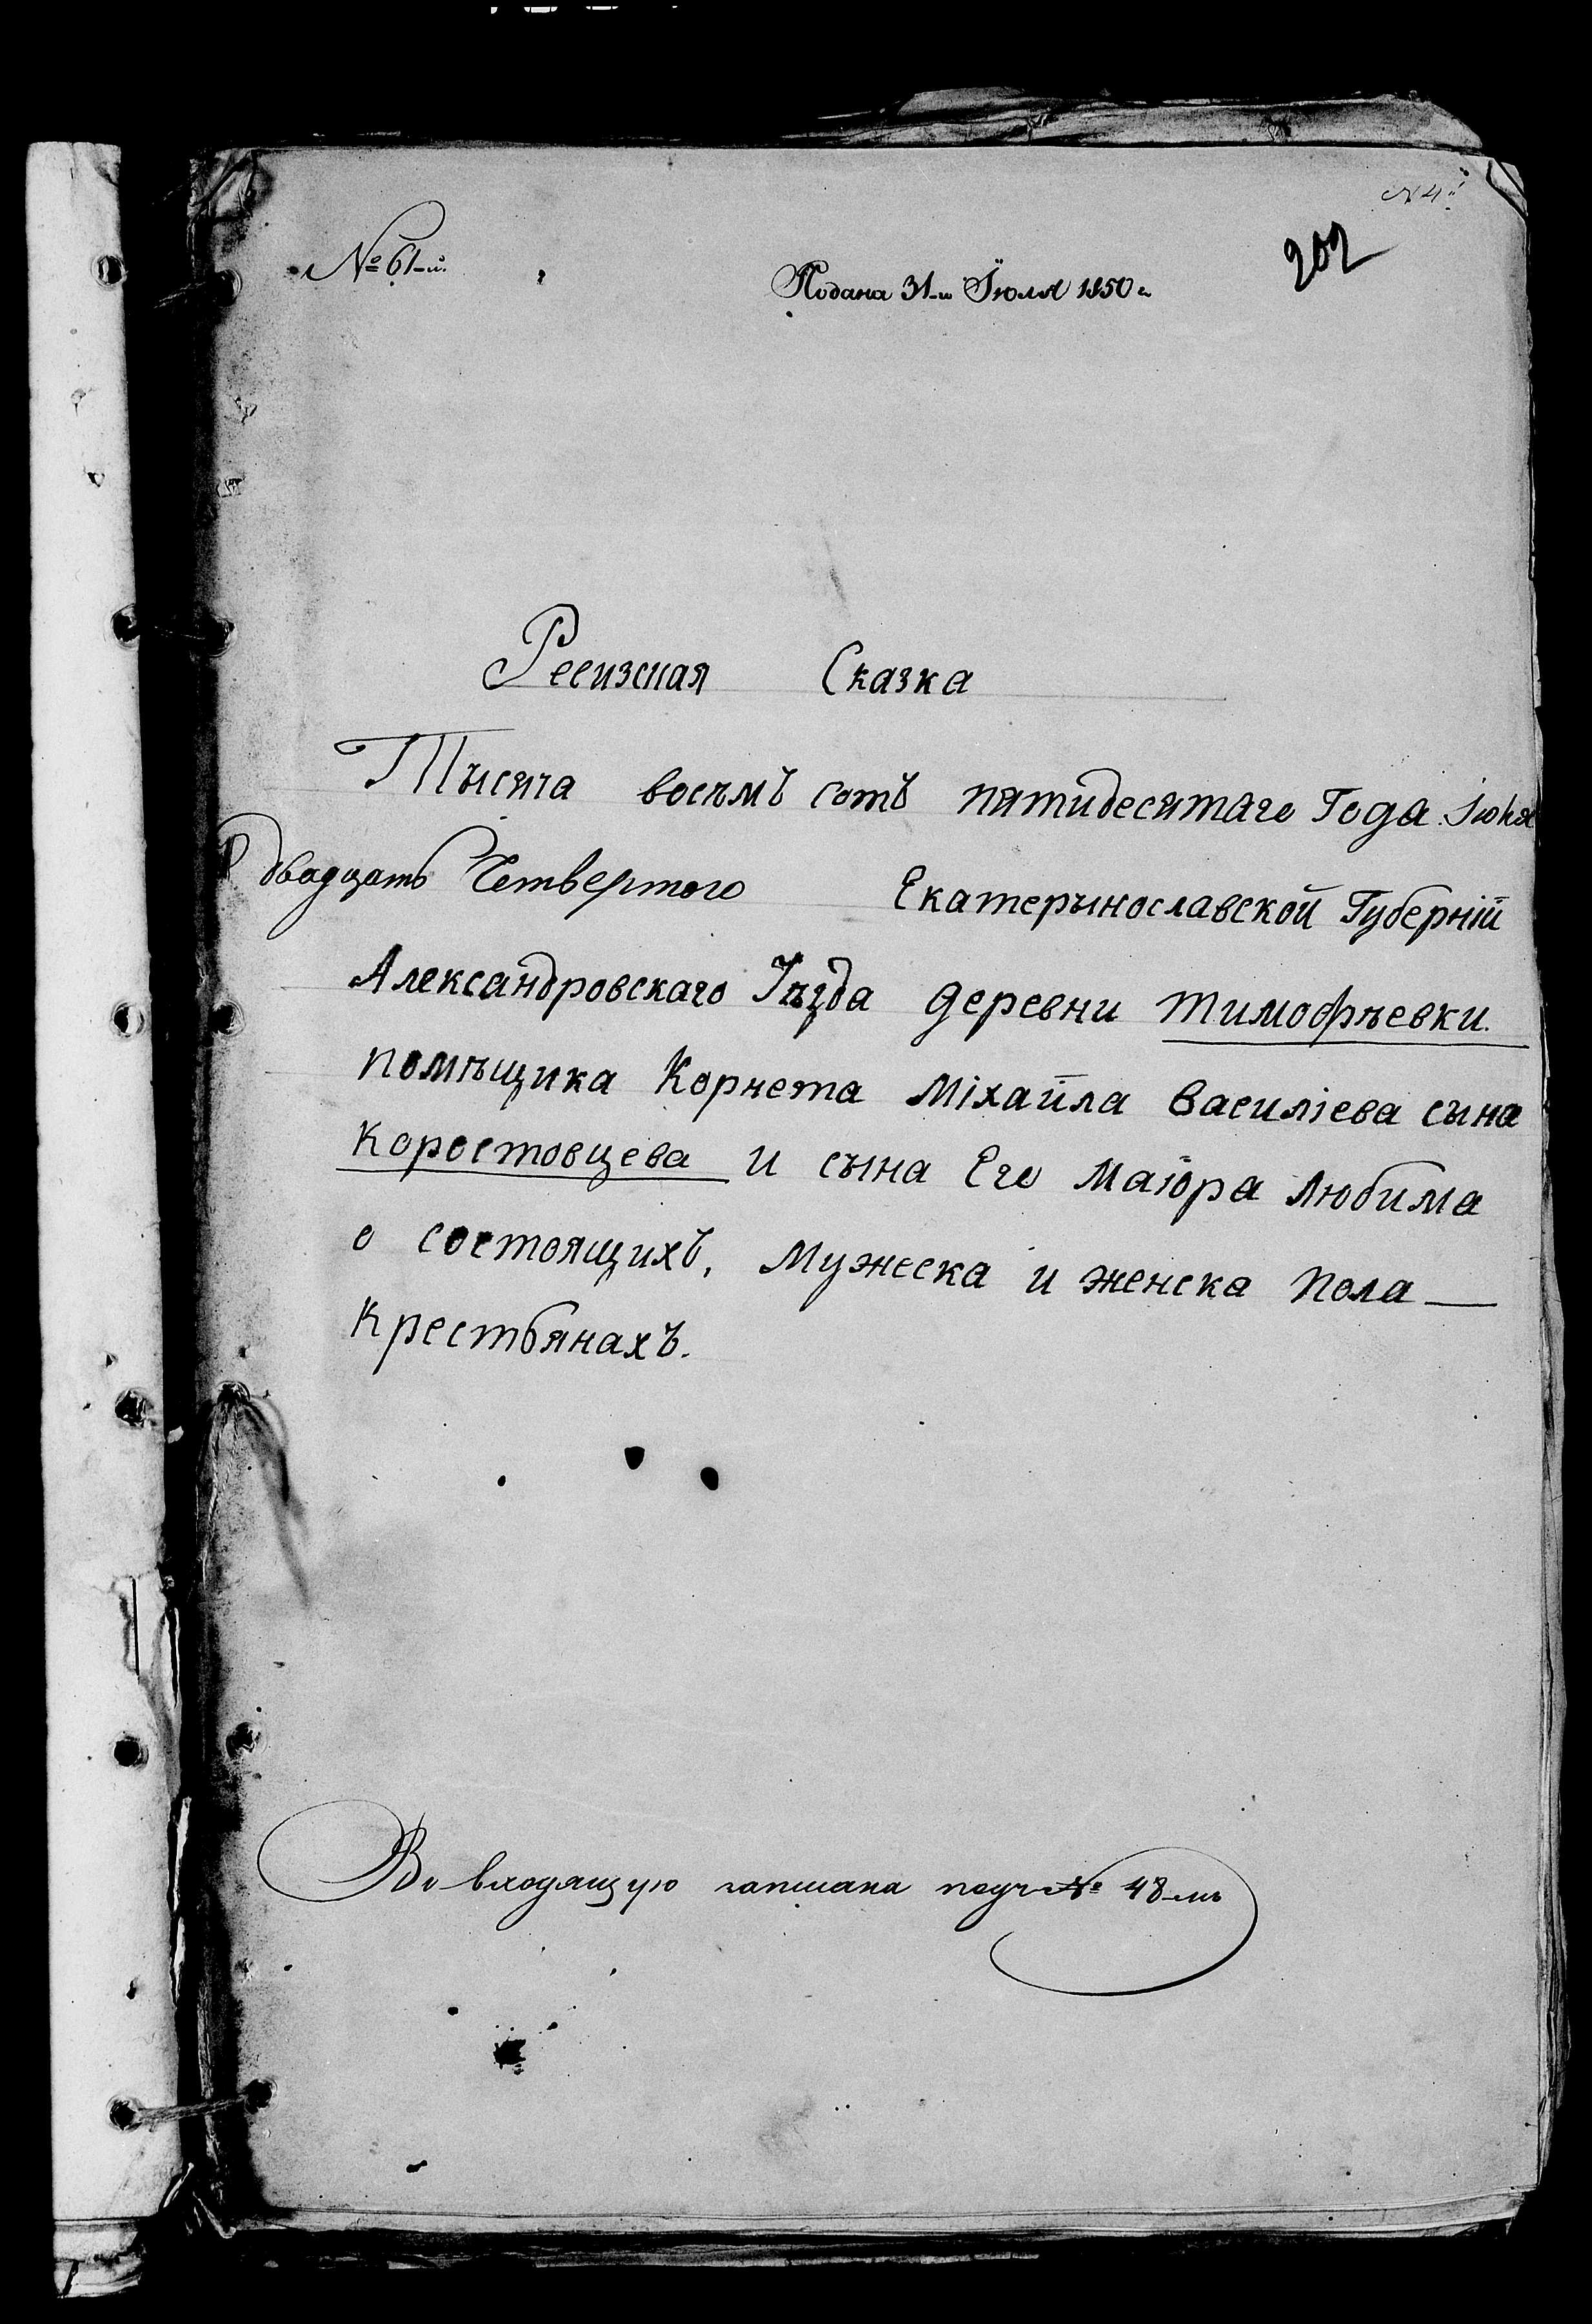 № 4й
№ 61-й.
202
Подана 31-го Іюля 1850 г.
Ревизская Сказка
Тысяча восѣмъ сотъ пятидесятаго Года Іюня
двадцать Четвертого Екатерынославской Губерніи
Александровскаго Уѣзда деревни Тимофѣевки.
помѣщика Корнета Міхайла Василіева сына
Коростовцева и сына Его Маіора Любима
о состоящихъ, Мужеска и женска пола —
Крестьянахъ.
Во входящую записана подъ № 48-мъ